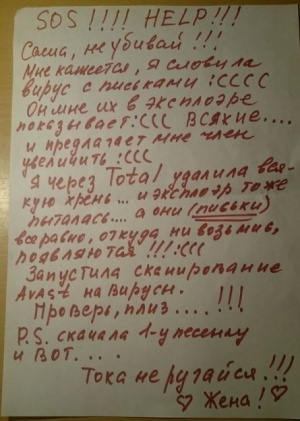 SOS !!!! HELP!!!
Саша, не убивай !!!
Мне кажется, я словила
вирус с письками :((((
Он мне их в эксплоэре
показывает:((( ВСЯКИЕ....
и предлагает мне член
увеличить :(((
Я через Total удалила вся-
кую хрень... и эксплоэр тоже
пыталась.... а они (письки)
всёравно, откуда ни возьмив,
подвляются !!!:(((
Запустила сканирование
Avast на вирусы.
Проверь, плиз.... !!!
P.S. скачала 1-у песенку
и ВОТ....
Тока не ругайся !!!
♡ Жена! ♡